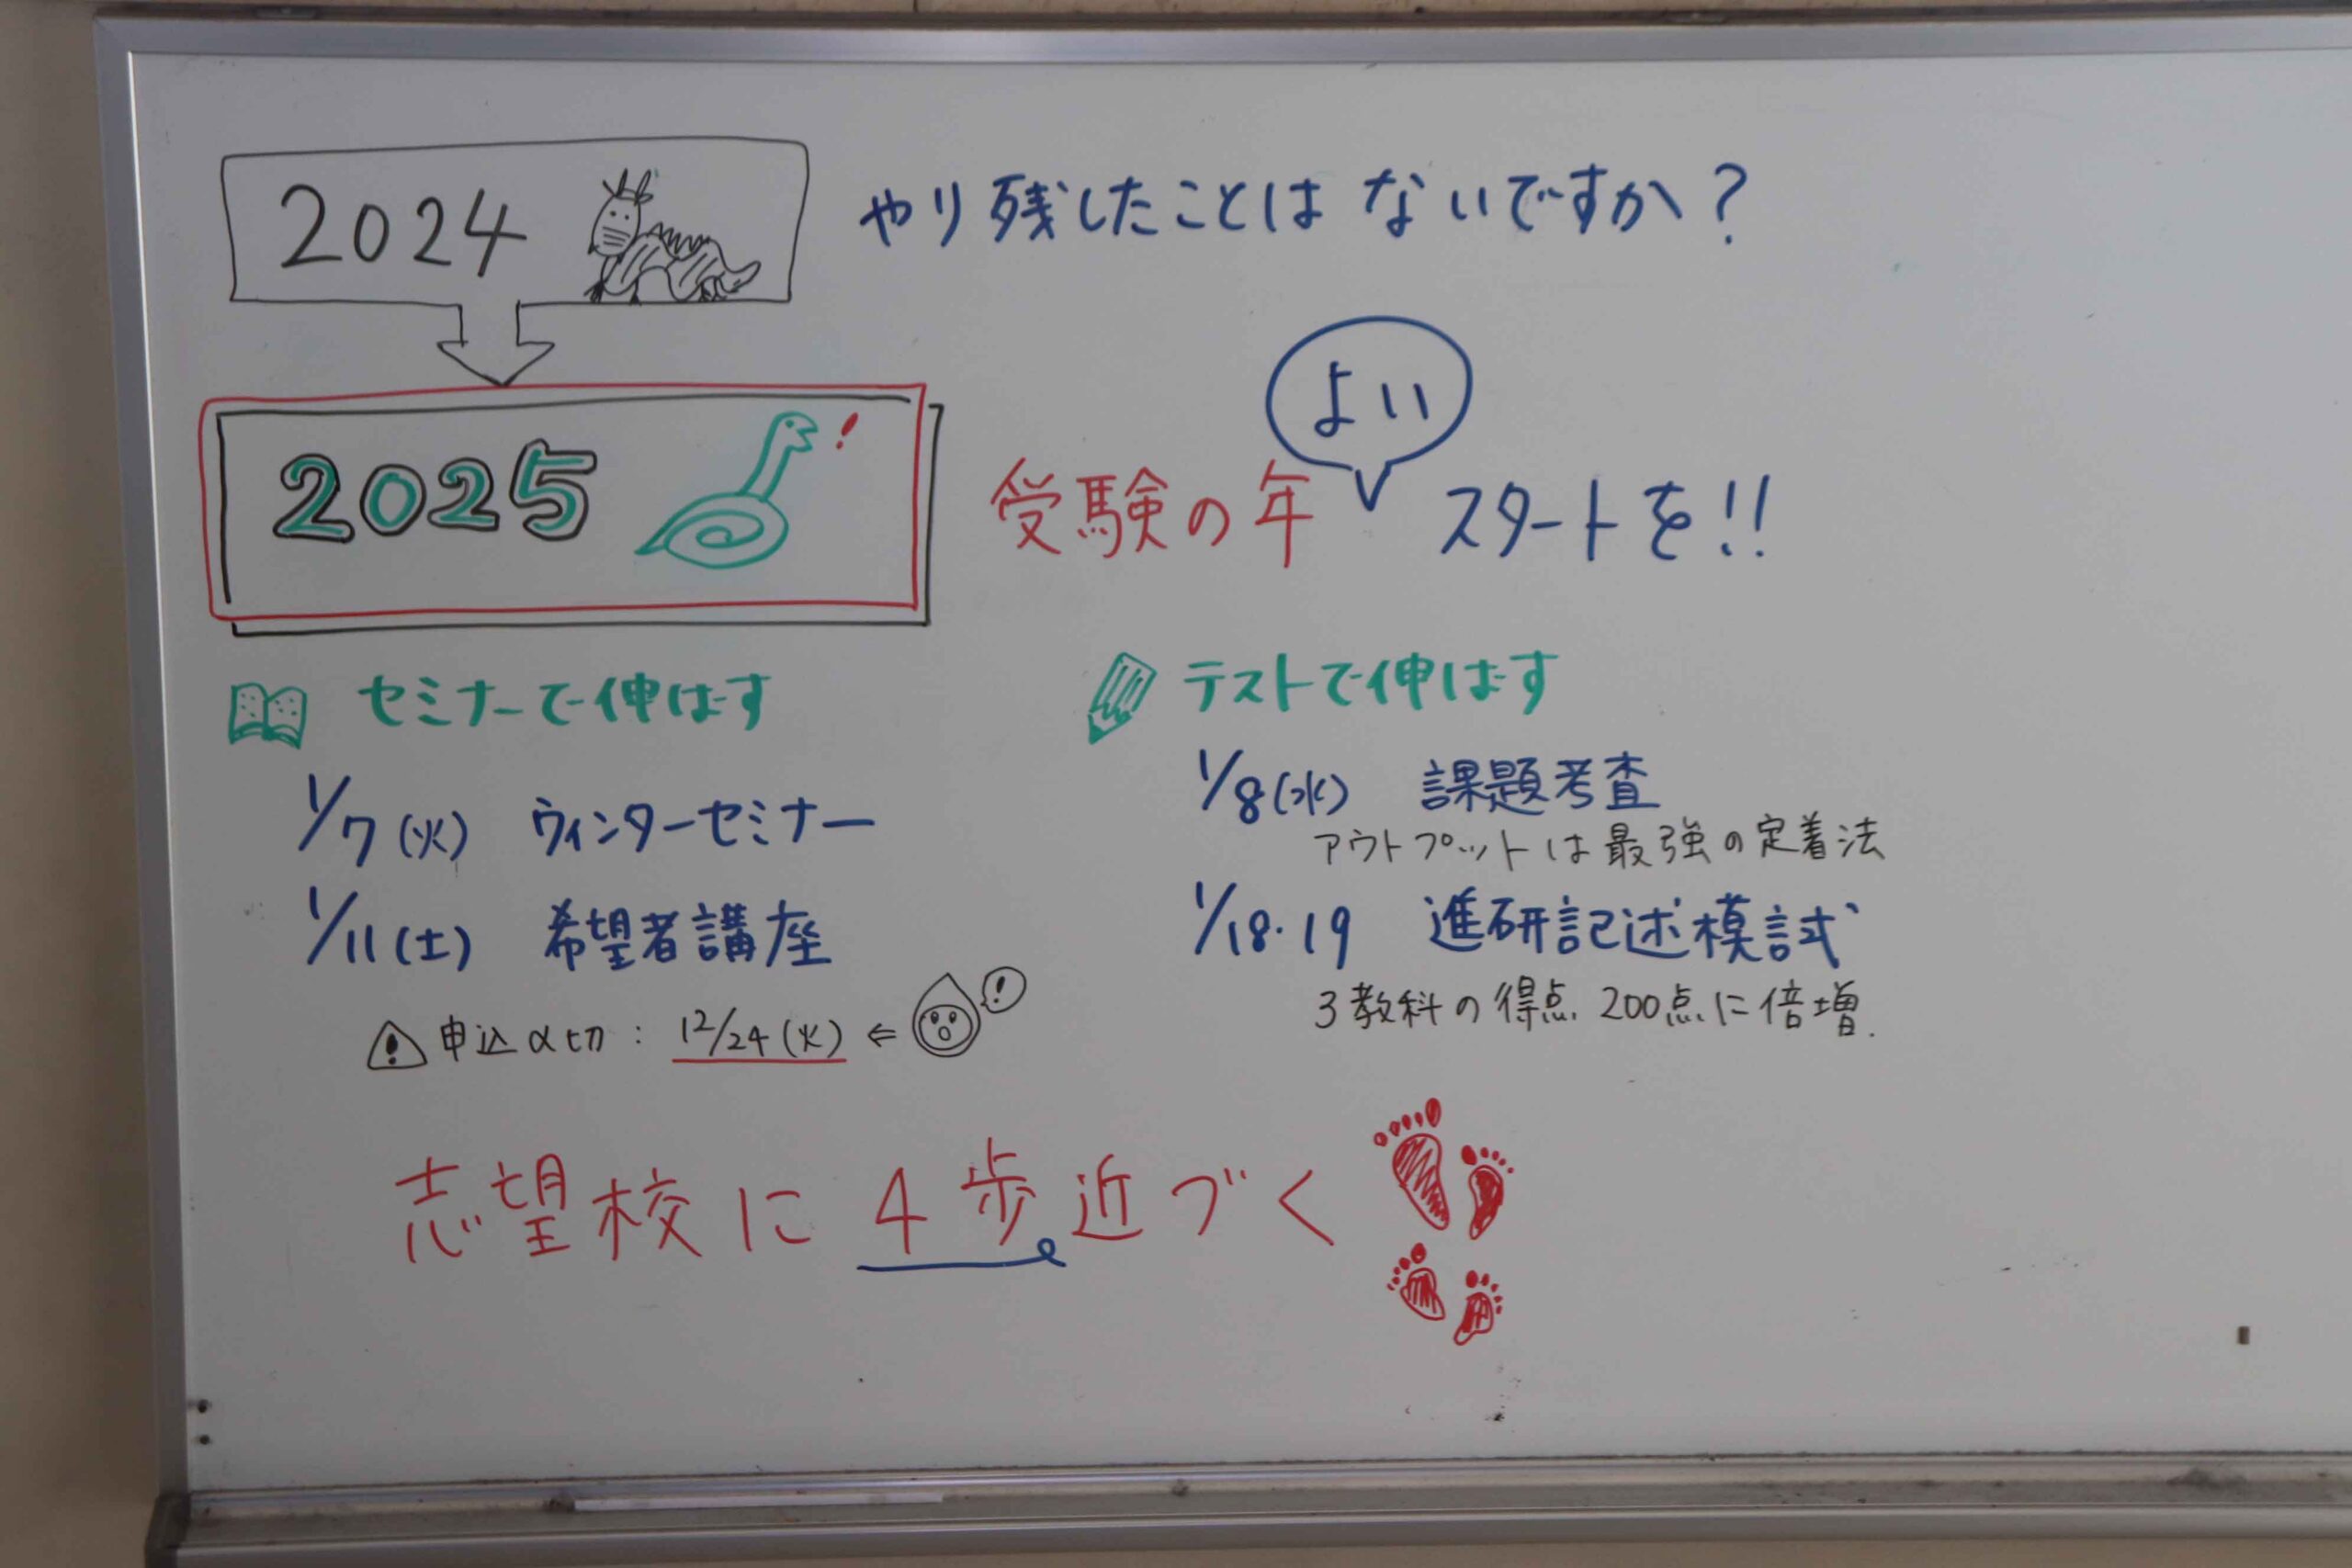 2024 やり残したことはないですか?
よい
2025 ! 受験の年 スタートを!!
セミナーで伸ばす
1/7(火) ウィンターセミナー
1/11(土) 希望者講座
! 申込〆切: 12/24(火) ⇐ !
テストで伸ばす
1/8(水) 課題考査
アウトプットは最強の定着法
1/18・19 進研記述模試
3教科の得点 200点に倍増.
志望校に4歩近づく